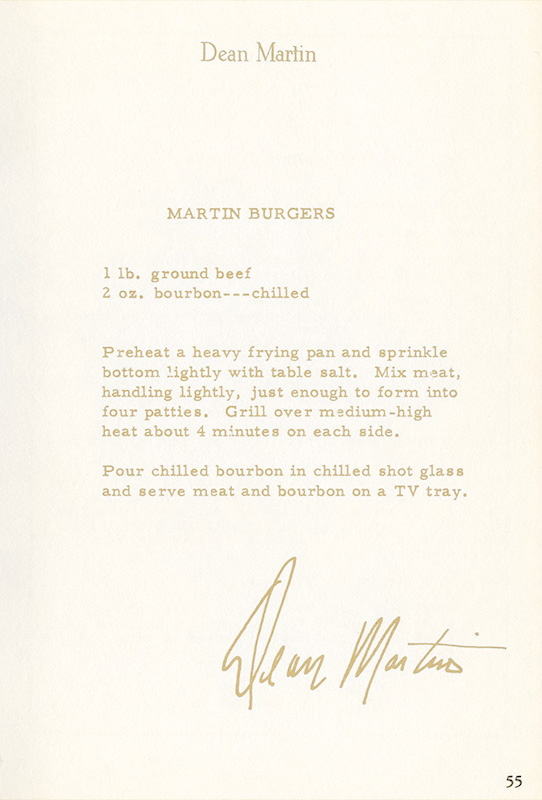 Dean Martin
MARTIN BURGERS
1 lb. ground beef
2 oz. bourbon---chilled
Preheat a heavy frying pan and sprinkle
bottom lightly with table salt. Mix meat,
handling lightly, just enough to form into
four patties. Grill over medium-high
heat about 4 minutes on each side.
Pour chilled bourbon in chilled shot glass
and serve meat and bourbon on a TV tray.
Dean Martin
55